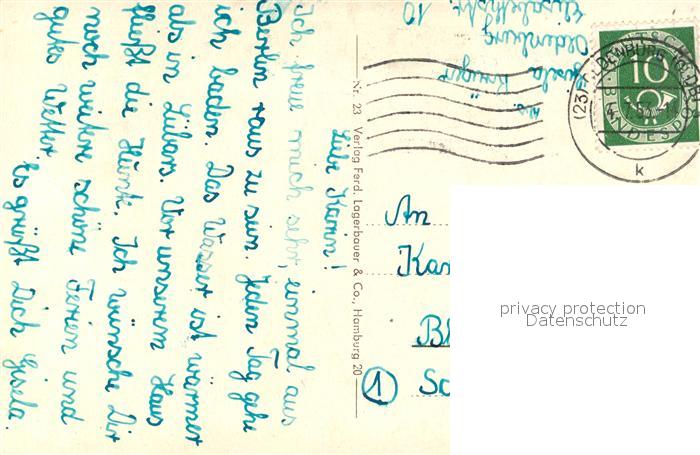 Liebe Karin!
Ich freue mich sehr, einmal aus
Berlin raus zu sein. Jeden Tag gehe
ich baden. Das Wasser ist wärmer
als in Lübars. Vor unserem Haus
fließt die Hunte. Ich wünsche Dir
noch weitere schöne Ferien und
gutes Wetter.
Es grüßt Dich Gisela.
Nr. 23 Verlag Ferd. Lagerbauer & Co., Hamburg 20
Abs. Gisela Krüger
Oldenburg
Elisabethstr.
10
(23) OLDENBURG (OLDB)
k
10
BUNDESPOST
An
Kar
Bl
1 Sc
privacy protection
Datenschutz